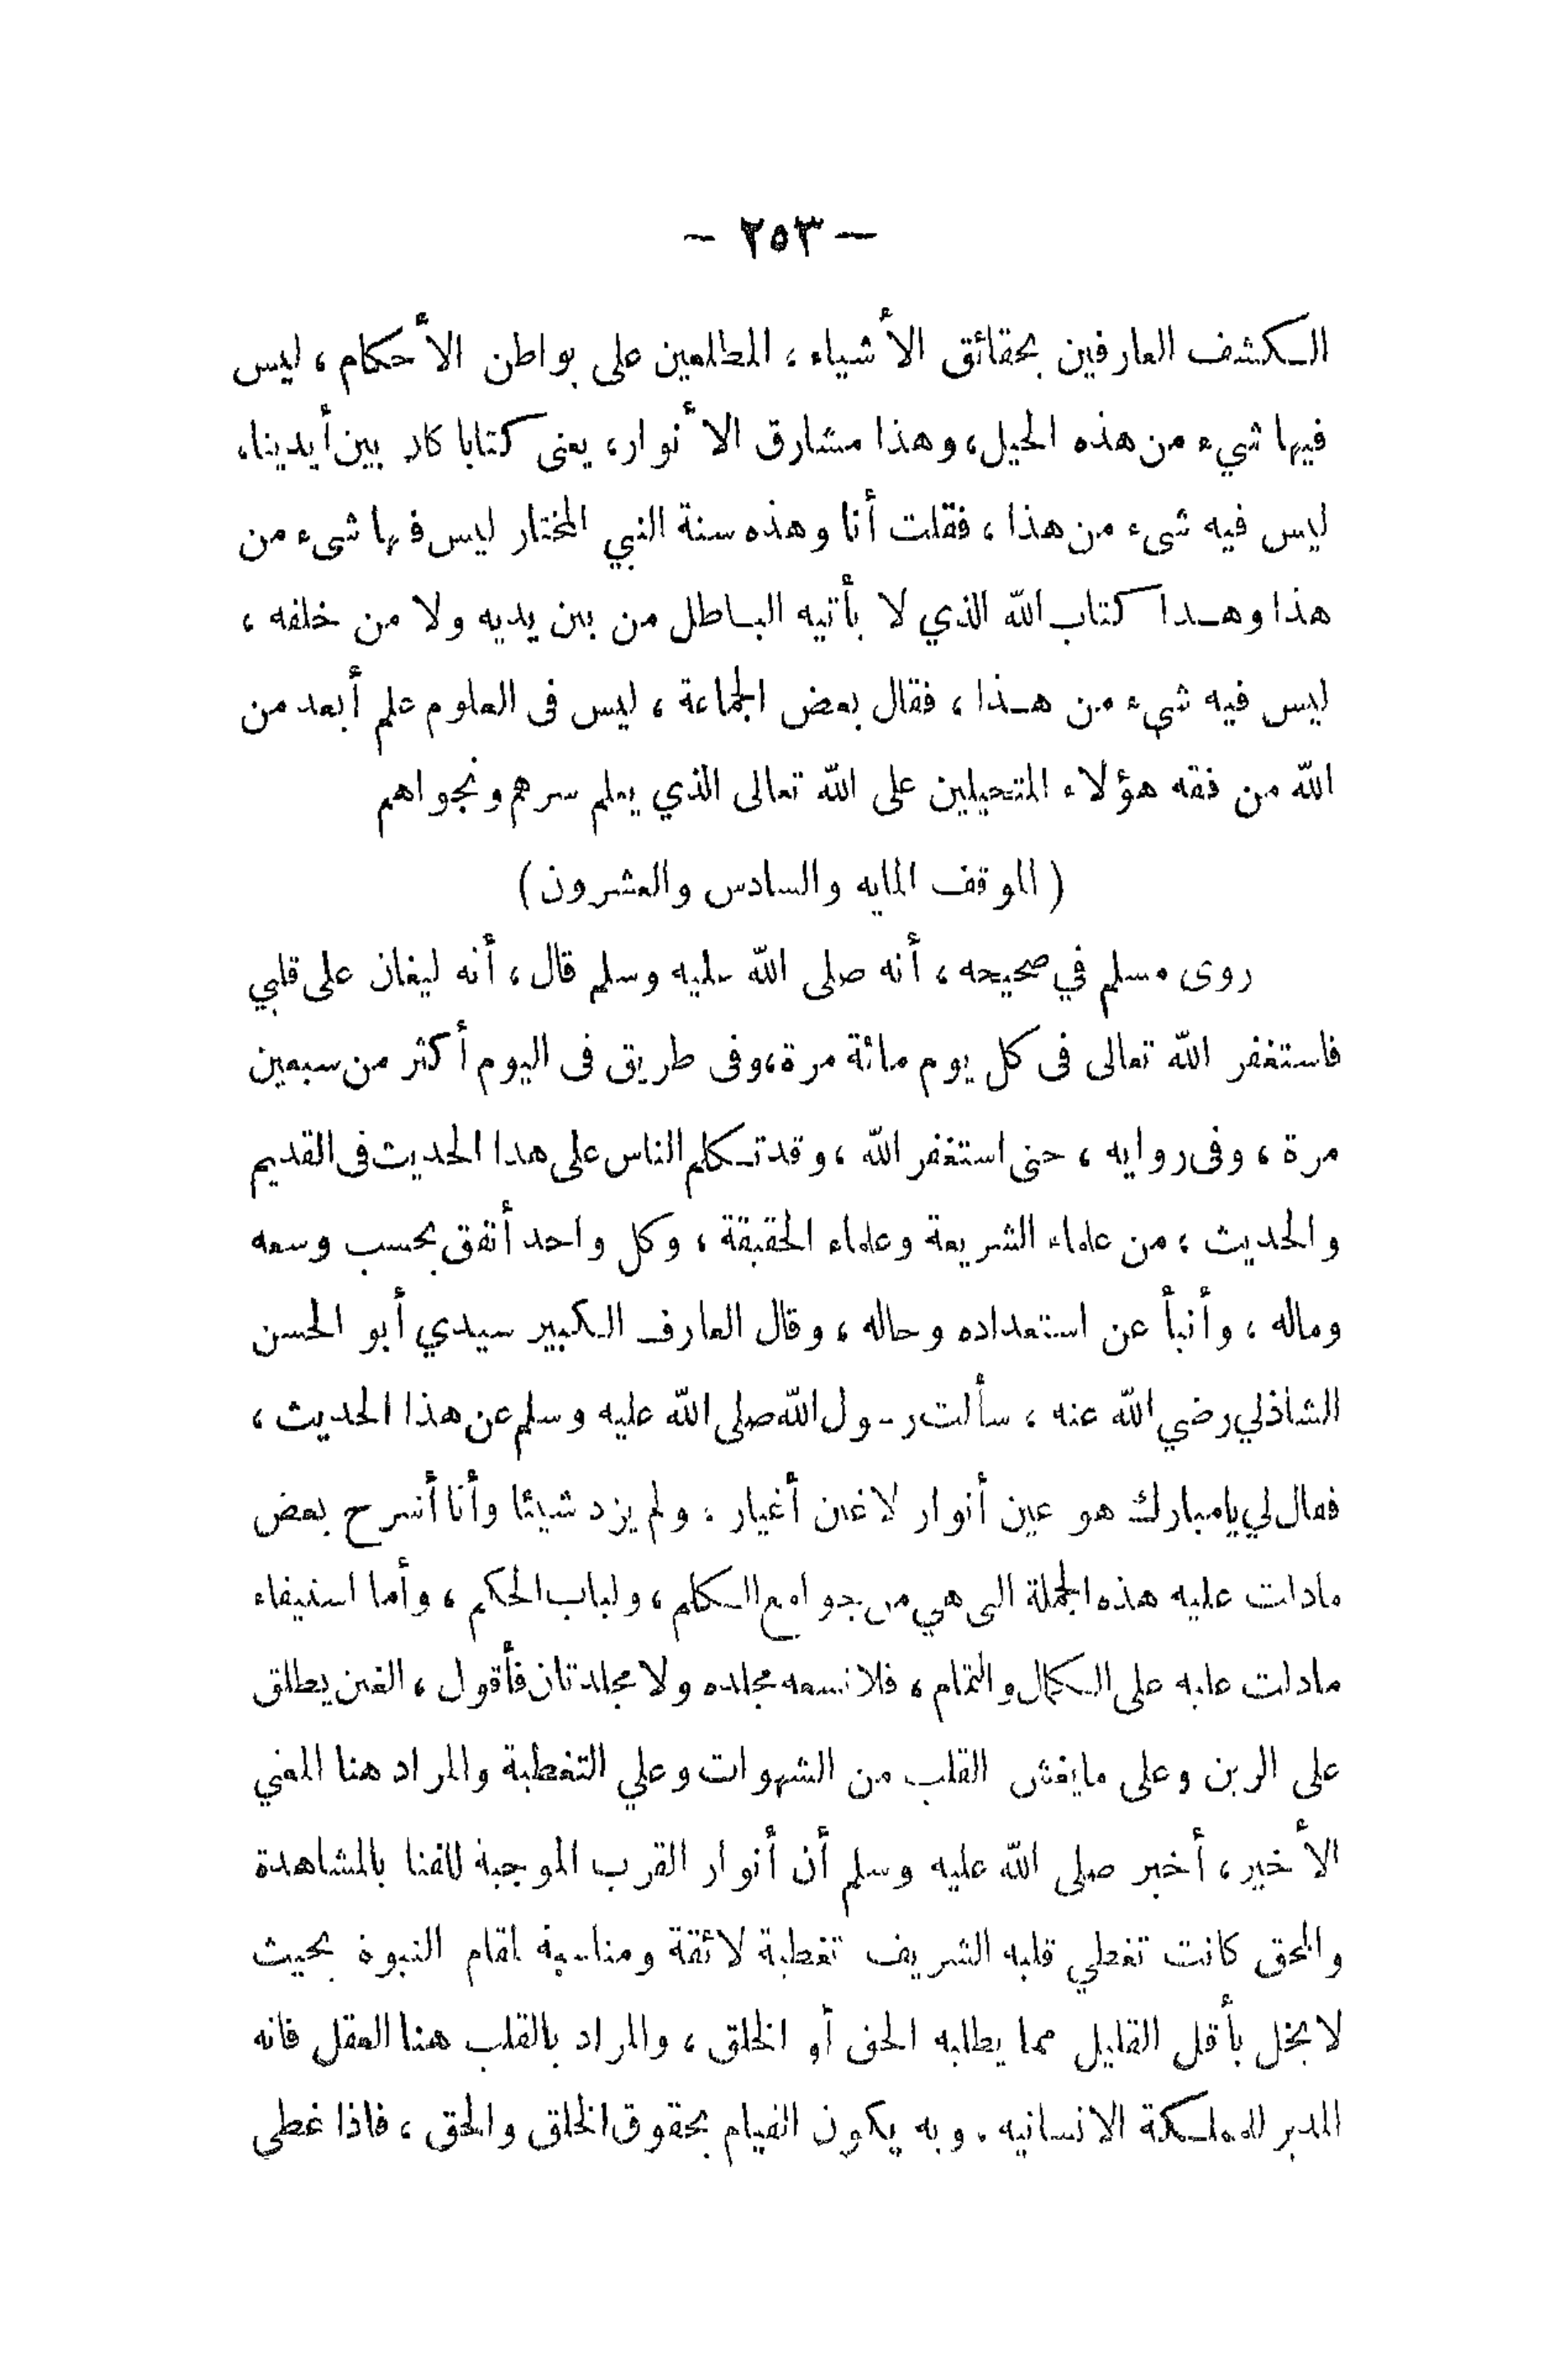 — ٢٥٣ —
الكشف العارفين بحقائق الأشياء ، المطلعين على بواطن الأحكام ، ليس
فيها شيء من هذه الحيل ، وهذا مشارق الأنوار ، يعنى كتابا كان بين أيدينا ،
ليس فيه شىء من هذا ، فقلت أنا وهذه سنة النبي المختار ليس فيها شىء من
هذا وهـذا كتاب الله الذي لا يأتيه البـاطل من بين يديه ولا من خلفه ،
ليس فيه شيء من هـذا ، فقال بعض الجماعة ، ليس فى العلوم علم أبعد من
الله من فقه هؤلاء المتحيلين على الله تعالى الذي يعلم سرهم ونجواهم
( الموقف المايه والسادس والعشرون )
روى مسلم في صحيحه ، أنه صلى الله عليه وسلم قال ، أنه ليغان على قلبي
فاستغفر الله تعالى فى كل يوم مائة مرة ، وفى طريق فى اليوم أكثر من سبعين
مرة ، وفى روايه ، حتى استغفر الله ، وقد تـكلم الناس على هذا الحديث فى القديم
والحديث ، من علماء الشريعة وعلماء الحقيقة ، وكل واحد أنفق بحسب وسعه
وماله ، وأنبأ عن استعداده وحاله ، وقال العارف الـكبير سيدي أبو الحسن
الشاذلي رضي الله عنه ، سألت رسول الله صلى الله عليه وسلم عن هذا الحديث ،
فقال لي يا مبارك هو غين أنوار لا غين أغيار ، ولم يزد شيئا وأنا أشرح بعض
مادلت عليه هذه الجملة التى هي من جوامع الـكلم ، ولباب الحكم ، وأما استيفاء
مادلت عليه على الـكمال والتمام ، فلا تسعه مجلده ولا مجلدتان فأقول ، الغين يطلق
على الرين وعلى مايغشى القلب من الشهوات وعلي التغطية والمراد هنا المعني
الأخير ، أخبر صلى الله عليه وسلم أن أنوار القرب الموجبة للفنا بالمشاهدة
والمحق كانت تغطي قلبه الشريف تغطية لائقة ومناسبة لمقام النبوة بحيث
لا يخل بأقل القليل مما يطلبه الحق أو الخلق ، والمراد بالقلب هنا العقل فانه
المدبر للمملـكة الانسانيه ، وبه يكون القيام بحقوق الخلق والحق ، فاذا غطى